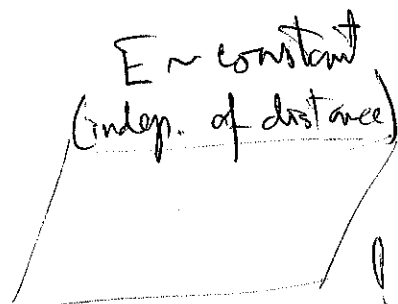 E ~ constant
(indep. of distance)